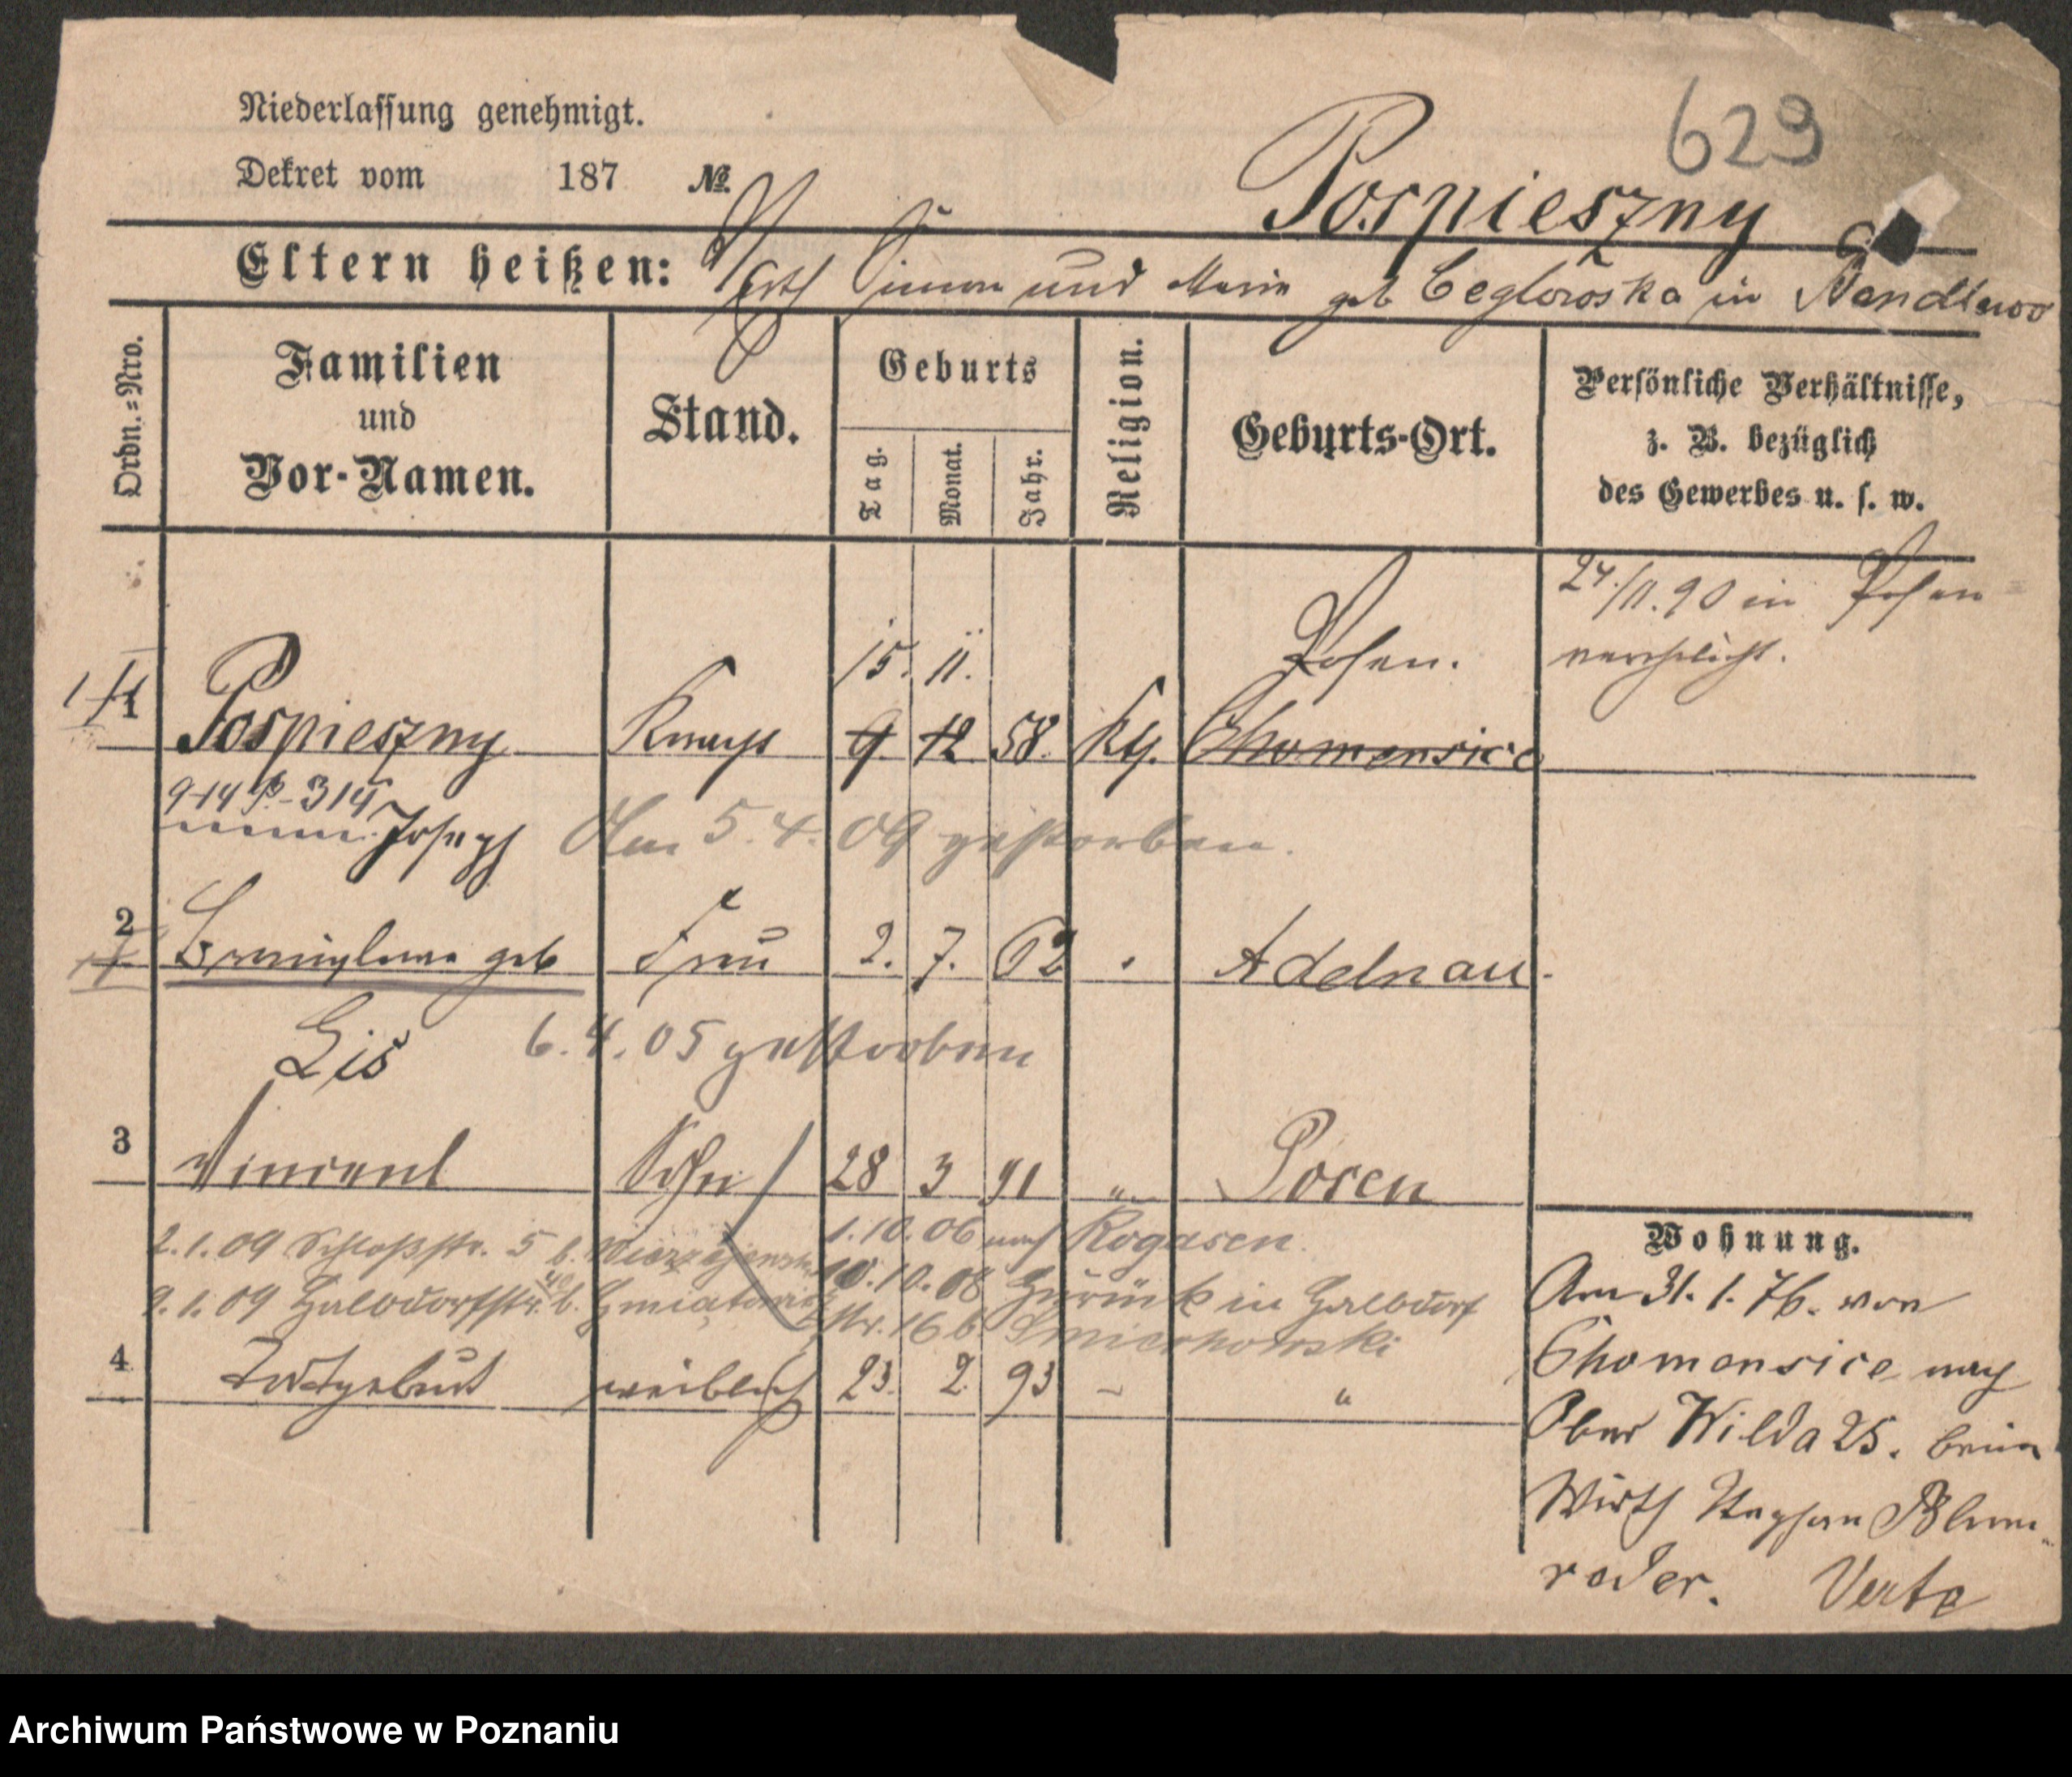 629
Niederlassung genehmigt.
Dekret vom 187 №
Pospieszny
Eltern heißen: Simon und Marie geb Ceglowska in
Ordn.=Nro.
Familien und Vor-Namen.
Stand.
Geburts
Tag.
Monat.
Jahr.
Religion.
Geburts-Ort.
Persönliche Verhältnisse, z. B. bezüglich des Gewerbes u. s. w.
24./11.90 in Posen
verehelicht.
15. 11. Posen.
1 Pospieszny Knecht 9. 12 58. Kth. Chomencice
Joseph Am 5.4.09 gestorben.
2 geb Frau 2. 7. 62 Adelnau.
Lis 6.4.05 gestorben
3 Vincent Sohn 28 3 91 " Posen
2.1.09 Schloßstr. 5 b. 1.10.06 nach Rogasen.
9.1.09 Halbdorfstr. b. 10.10.08 Zurück in Halbdorf
str. 16 b
4 Todtgeburt weiblich 23. 2. 93 "
Wohnung.
Am 31.1.76. von
Chomencice nach
Ober Wilda 25. beim
Wirth Stephan Blum-
roder. Verte
Archiwum Państwowe w Poznaniu